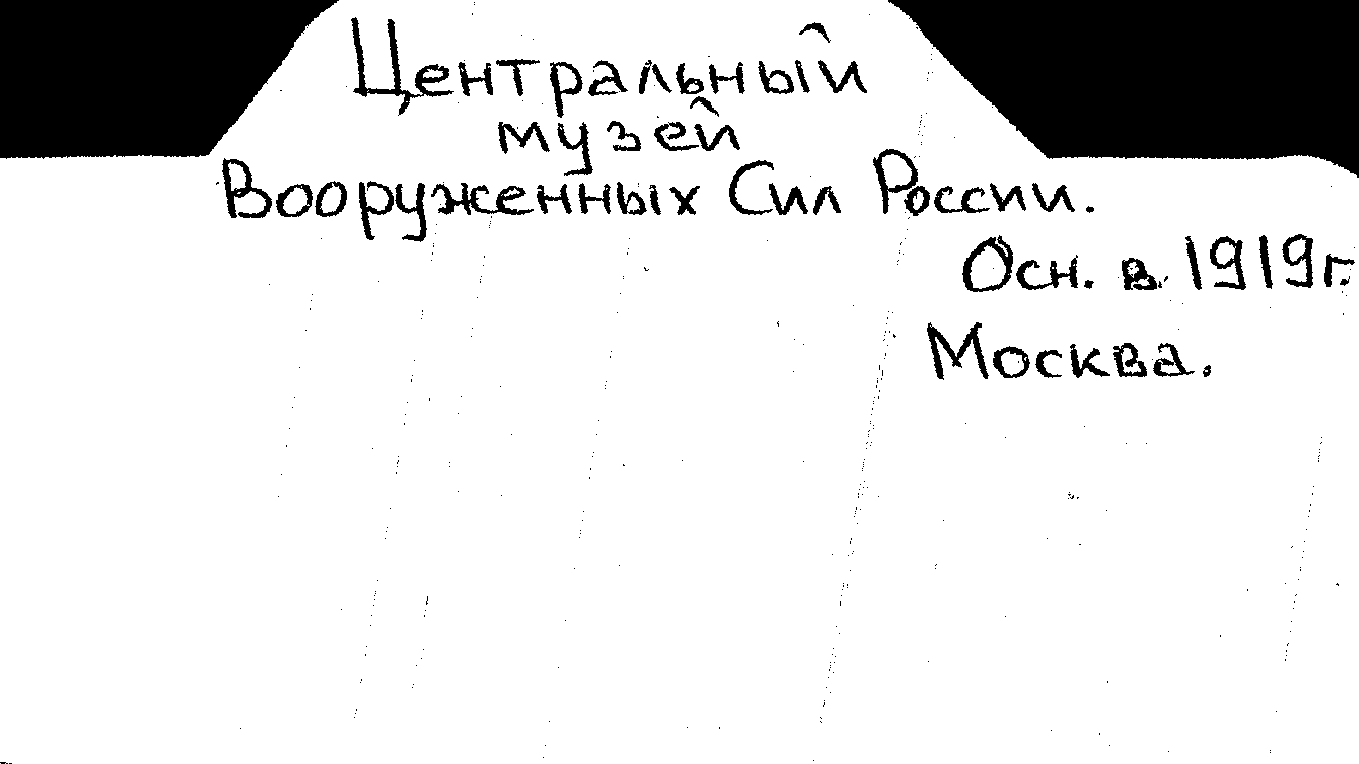 Центральный
музей
Вооруженных Сил России.
Осн. в 1919г.
Москва.